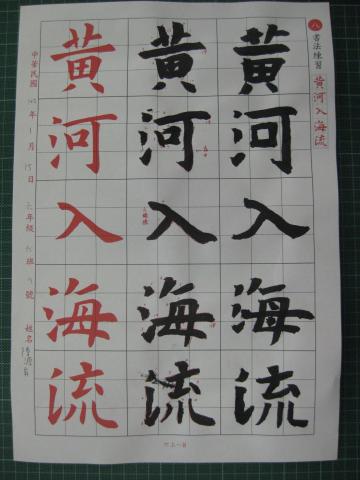 八 書法練習 黃河入海流
黃河入海流
黃河入海流
黃河入海流
中華民國 年 1 月 15 日 年級 班 號 姓名